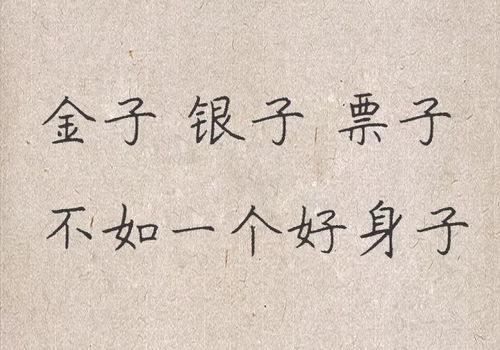 金子 银子 票子
不如一个好身子